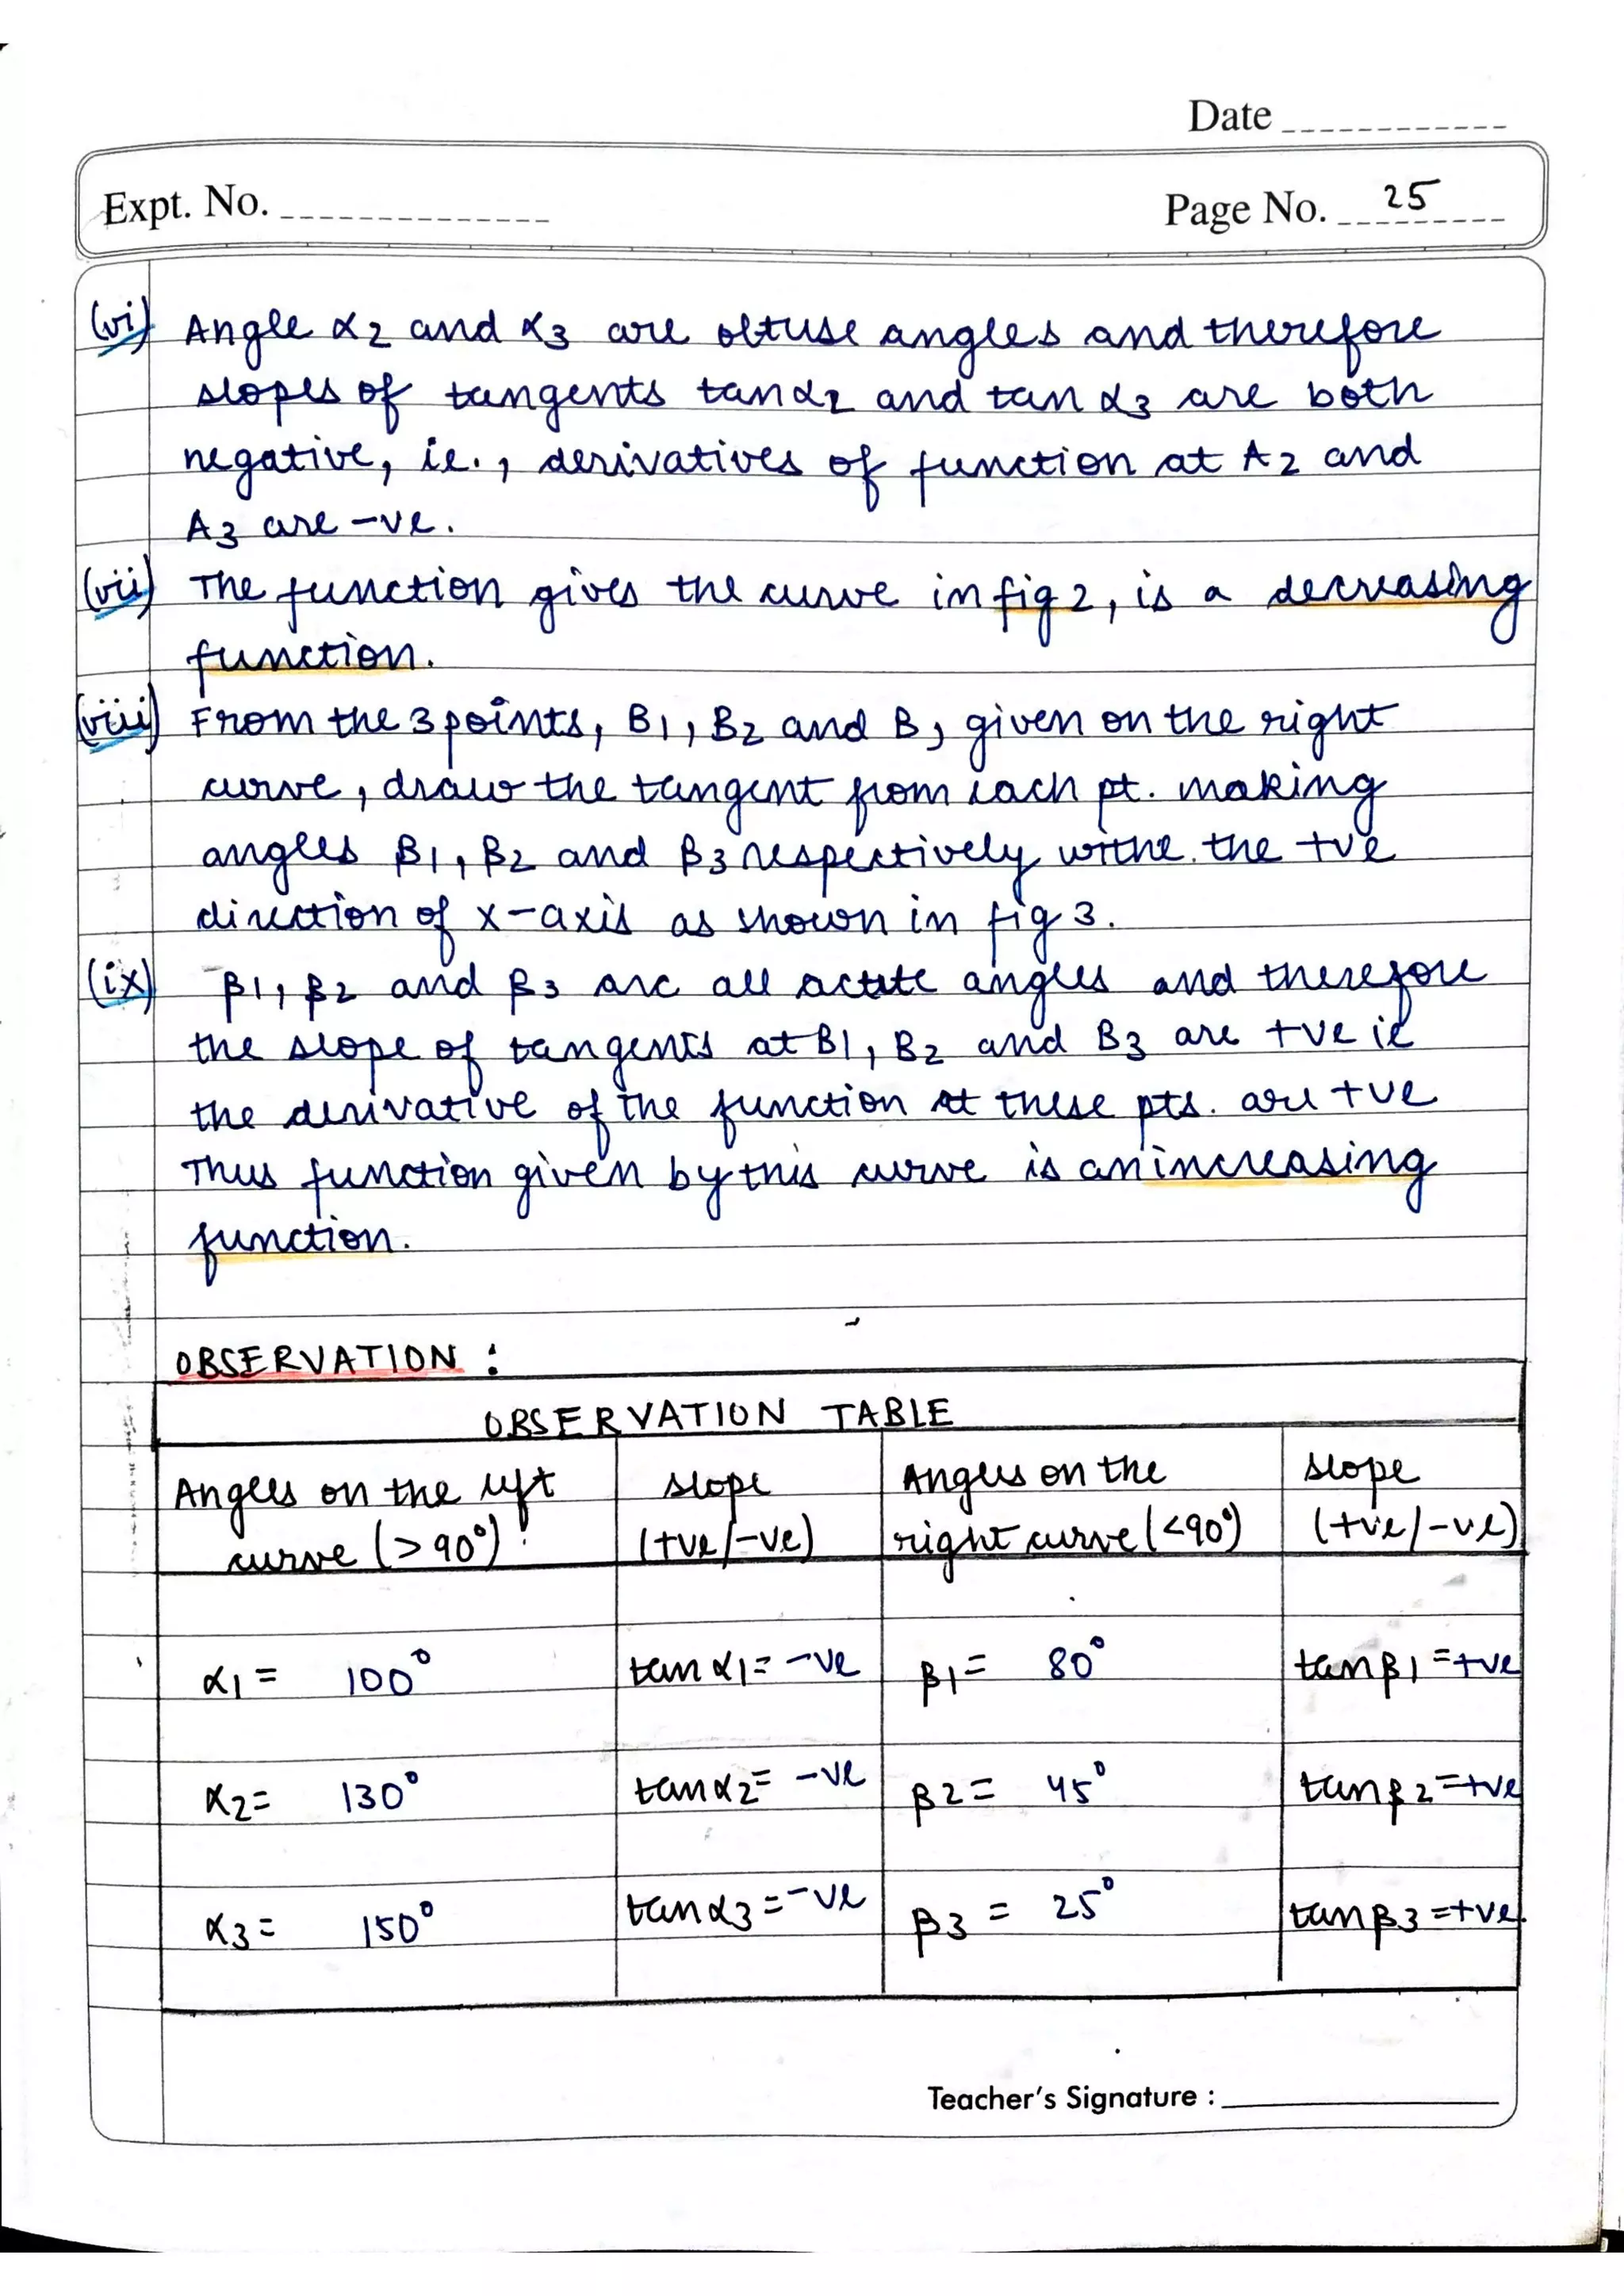 Date
Expt. No.
Page No. 25
(vi) Angle α2 and α3 are obtuse angles and therefore
slopes of tangents tanα2 and tan α3 are both
negative, ie., derivatives of function at A2 and
A3 are -ve.
(vii) The function gives the curve in fig 2, is a decreasing
function.
(viii) From the 3 points, B1, B2 and B3 given on the right
curve, draw the tangent from each pt. making
angles β1, β2 and β3 respectively withe. the +ve
direction of x-axis as shown in fig 3.
(ix) β1, β2 and β3 are all acute angles and therefore
the slope of tangents at B1, B2 and B3 are +ve ie
the derivative of the function at these pts. are +ve
Thus function given by this curve is an increasing
function.
OBSERVATION :
OBSERVATION TABLE
Angles on the left curve (>90°) slope (+ve/-ve) Angles on the right curve (<90°) slope (+ve/-ve)
α1 = 100° tan α1 = -ve β1 = 80° tan β1 = +ve
α2 = 130° tan α2 = -ve β2 = 45° tan β2 = +ve
α3 = 150° tan α3 = -ve β3 = 25° tan β3 = +ve.
Teacher's Signature :